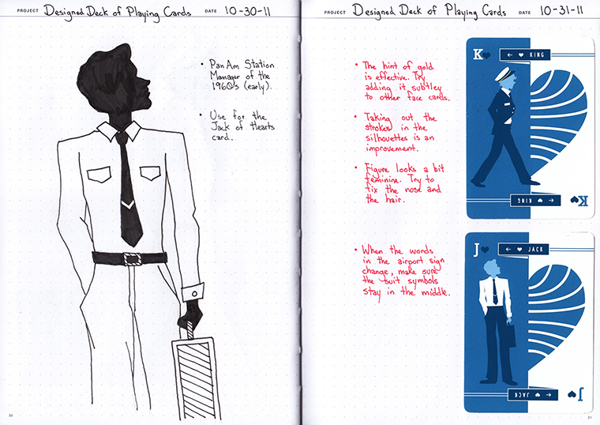 PROJECT Designed Deck of Playing Cards DATE 10-30-11
• Pan Am Station
Manager of the
1960's (early).
• Use for the
Jack of Hearts
card.
PROJECT Designed Deck of Playing Cards DATE 10-31-11
• The hint of gold
is effective. Try
adding it subtley
to other face cards.
• Taking out the
strokes in the
silhouettes is an
improvement.
• Figure looks a bit
feminine. Try to
fix the nose and
the hair.
• When the words
in the airport sign
change, make sure
the suit symbols
stay in the middle.
K
← ♥ KING
← ♥ KING
K
J
← ♥ JACK
← ♥ JACK
J